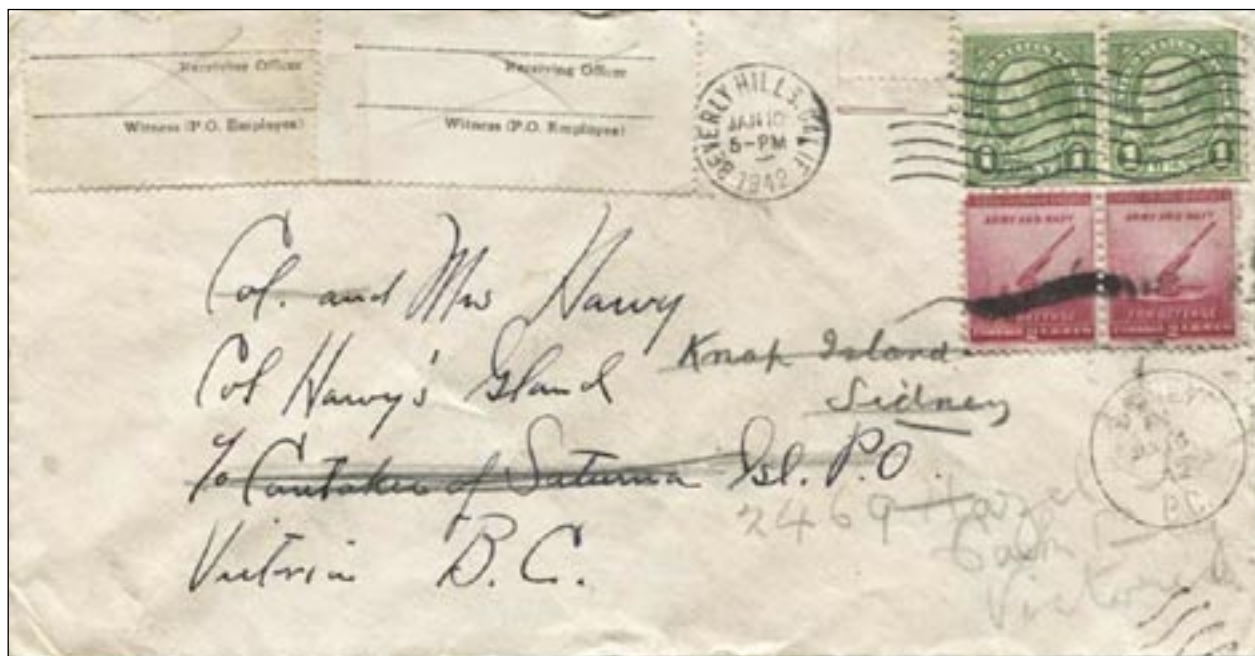 Receiving Officer
Witness (P.O. Employee)
Receiving Officer
Witness (P.O. Employee)
BEVERLY HILLS, CALIF.
JAN 10
5-PM
1942
1 1
1 1
ARMY AND NAVY
FOR DEFENSE
2
ARMY AND NAVY
FOR DEFENSE
2
Col. and Mrs
Col Island
Knap Island
Sidney
c/o Caretaker of Saturna Isl. P.O.
2469
Victoria B.C.
Victoria